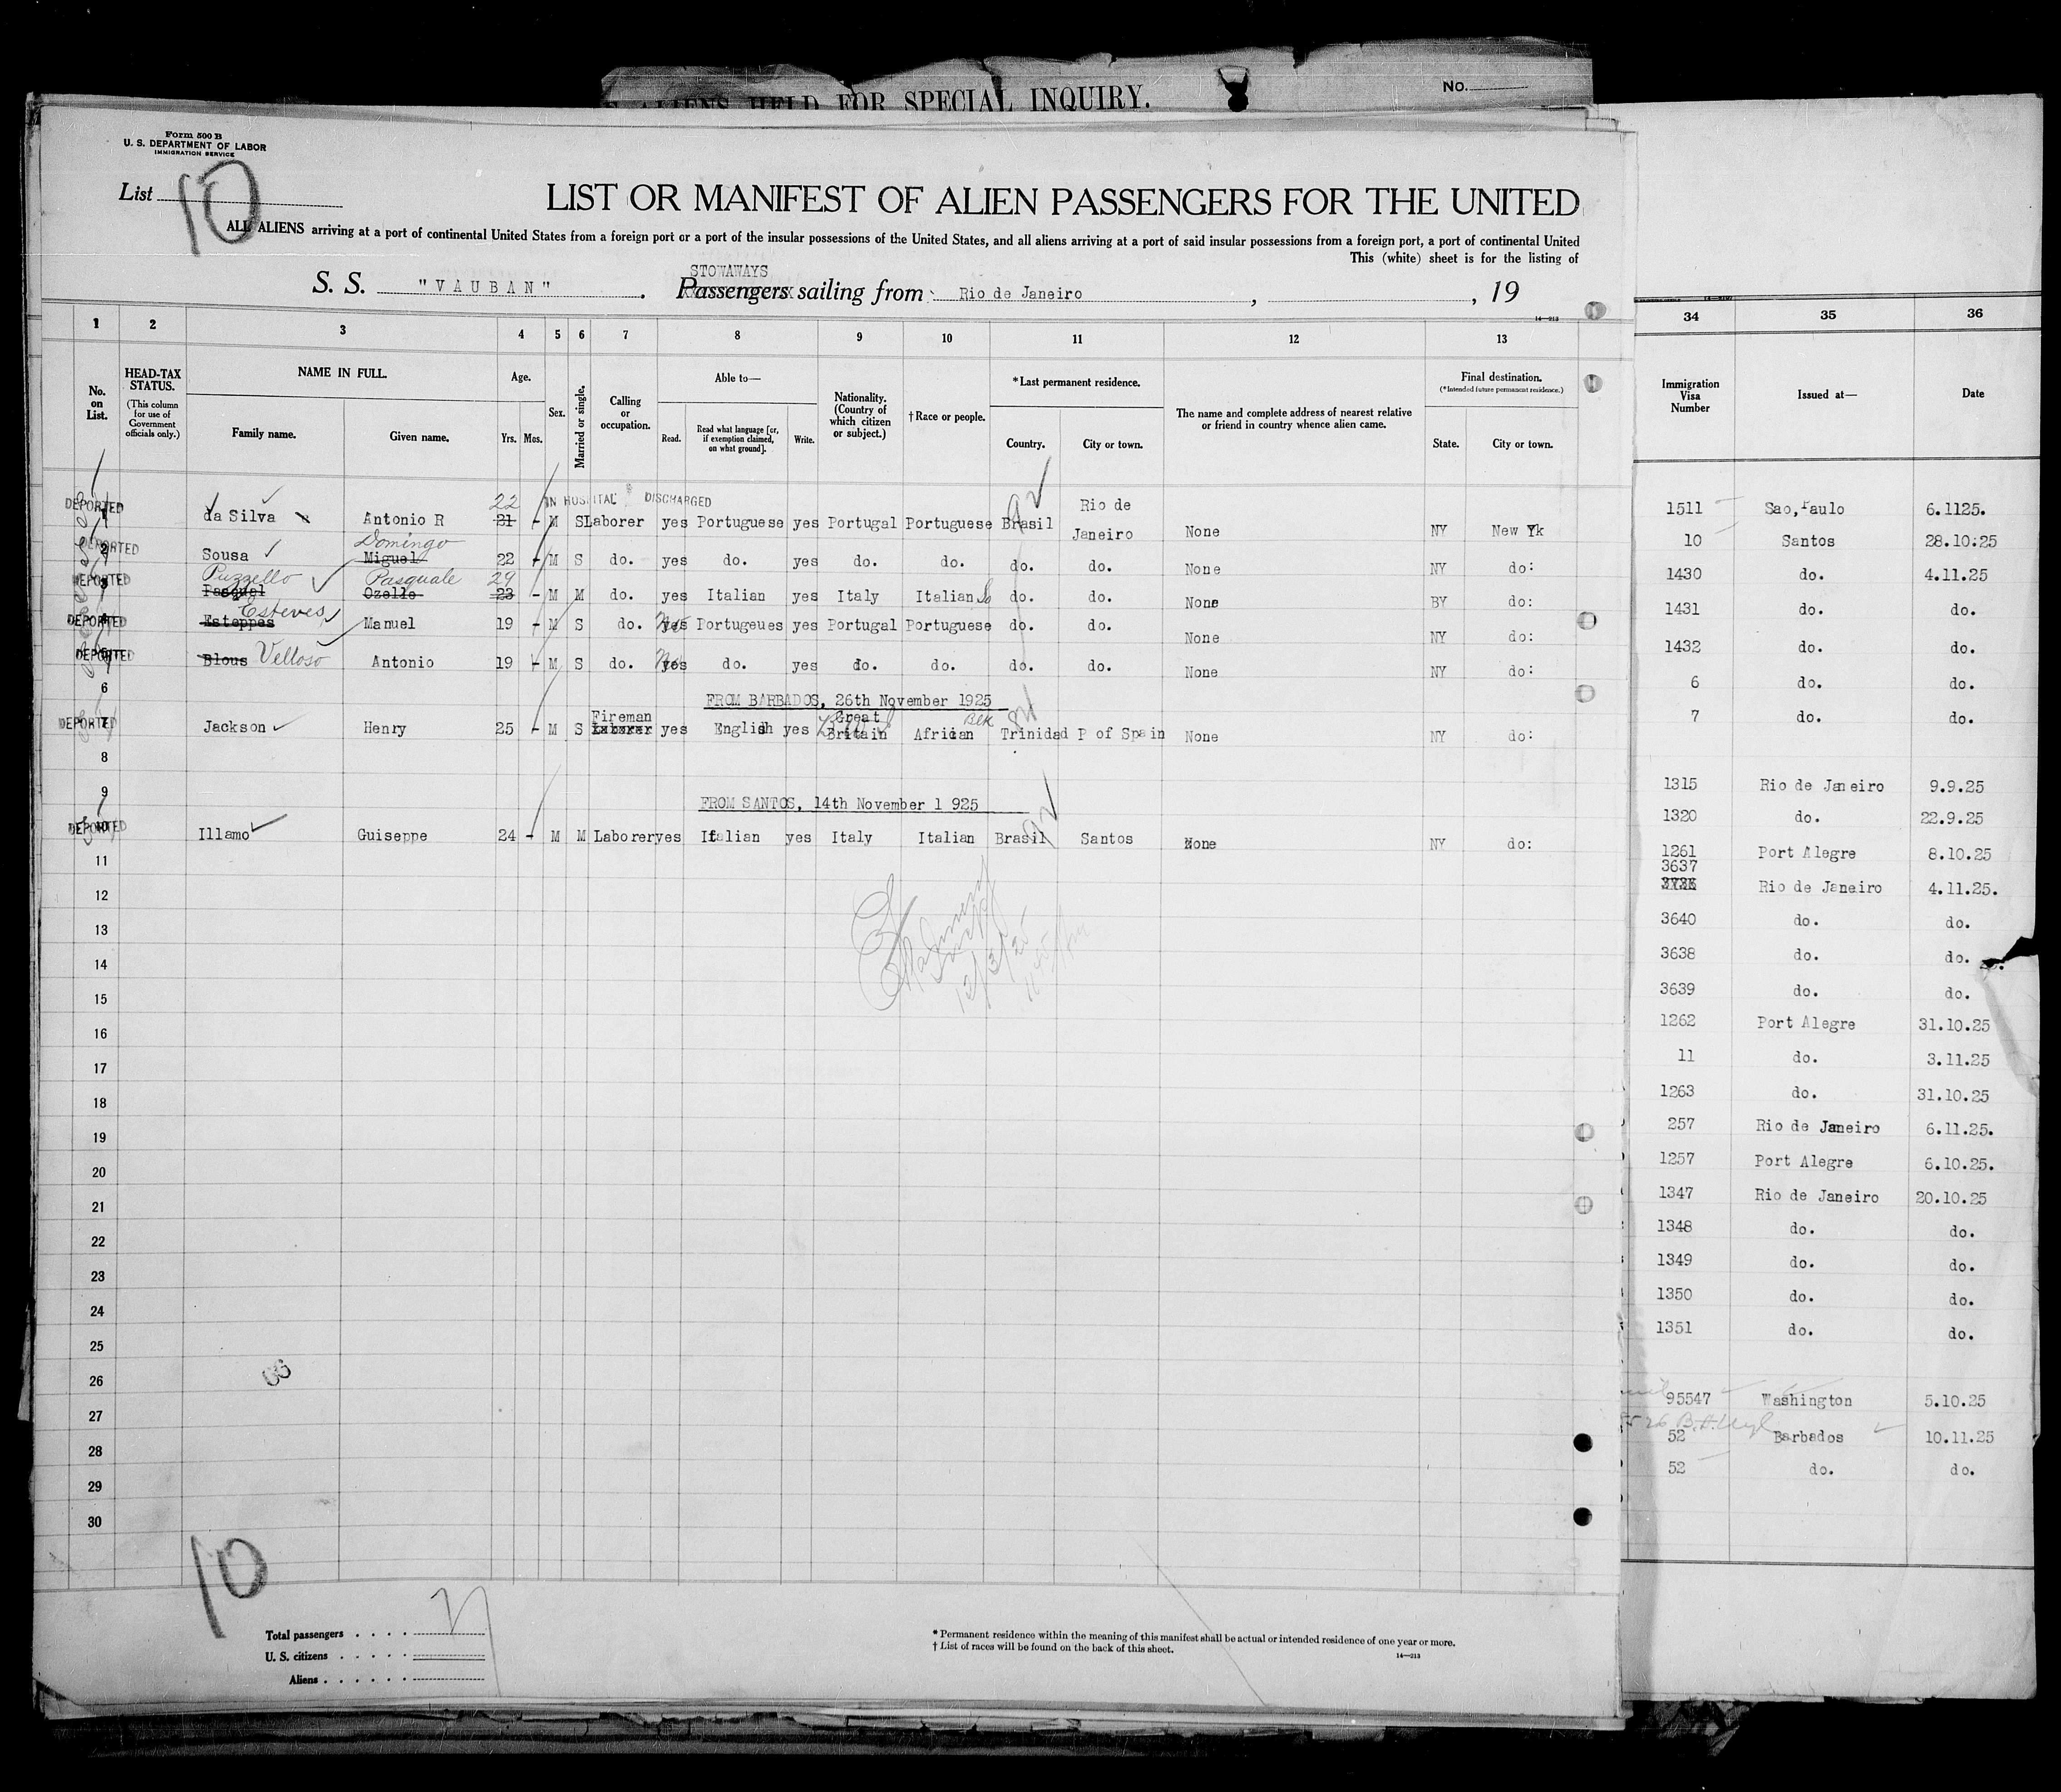 ALIENS HELD FOR SPECIAL INQUIRY.
No.
Form 500 B
U. S. DEPARTMENT OF LABOR
IMMIGRATION SERVICE
List 10
LIST OR MANIFEST OF ALIEN PASSENGERS FOR THE UNITED
ALL ALIENS arriving at a port of continental United States from a foreign port or a port of the insular possessions of the United States, and all aliens arriving at a port of said insular possessions from a foreign port, a port of continental United
This (white) sheet is for the listing of
STOWAWAYS
S. S. "VAUBAN" . Passengers sailing from Rio de Janeiro , , 19
14—213
1 2 3 4 5 6 7 8 9 10 11 12 13
No. on List.
HEAD-TAX STATUS.
(This column for use of Government officials only.)
NAME IN FULL.
Family name. Given name.
Age.
Yrs. Mos.
Sex.
Married or single.
Calling or occupation.
Able to—
Read. Read what language [or, if exemption claimed, on what ground]. Write.
Nationality. (Country of which citizen or subject.)
†Race or people.
*Last permanent residence.
Country. City or town.
The name and complete address of nearest relative or friend in country whence alien came.
Final destination.
(*Intended future permanent residence.)
State. City or town.
22 IN HOSPITAL DISCHARGED
DEPORTED 1 da Silva Antonio R 21 - M S Laborer yes Portuguese yes Portugal Portuguese Brasil Rio de Janeiro None NY New Yk
Domingo
DEPORTED 2 Sousa Miguel 22 - M S do. yes do. yes do. do. do. do. None NY do:
Puzzello Pasquale 29
DEPORTED 3 Pasquel Ozello 23 - M M do. yes Italian yes Italy Italian So do. do. None BY do:
Esteves
DEPORTED 4 Esteppes Manuel 19 - M S do. No yes Portugeues yes Portugal Portuguese do. do. None NY do:
DEPORTED 5 Blous Velloso Antonio 19 - M S do. No yes do. yes do. do. do. do. None NY do:
6 FROM BARBADOS, 26th November 1925
Fireman Great Blk
DEPORTED 7 Jackson Henry 25 - M S Laborer yes English yes Britain African Trinidad P of Spain None NY do:
8
9 FROM SANTOS, 14th November 1 925
DEPORTED 10 Illamo Guiseppe 24 - M M Laborer yes Italian yes Italy Italian Brasil Santos None NY do:
11
12
13
12/3/25
14
15
16
17
18
19
20
21
22
23
24
25
26
27
28
29
30
10
Total passengers . . . .
U. S. citizens . . . . .
Aliens . . . . . .
* Permanent residence within the meaning of this manifest shall be actual or intended residence of one year or more.
† List of races will be found on the back of this sheet.
14—213
34 35 36
Immigration Visa Number Issued at— Date
1511 Sao,Paulo 6.1125.
10 Santos 28.10:25
1430 do. 4.11.25
1431 do. do.
1432 do. do.
6 do. do.
7 do. do.
1315 Rio de Janeiro 9.9.25
1320 do. 22.9.25
1261 Port Alegre 8.10.25
3637
Rio de Janeiro 4.11.25.
3640 do. do.
3638 do. do.
3639 do. do.
1262 Port Alegre 31.10.25
11 do. 3.11.25
1263 do. 31.10.25
257 Rio de Janeiro 6.11.25.
1257 Port Alegre 6.10.25.
1347 Rio de Janeiro 20.10.25
1348 do. do.
1349 do. do.
1350 do. do.
1351 do. do.
95547 Washington 5.10.25
52 Barbados 10.11.25
52 do. do.